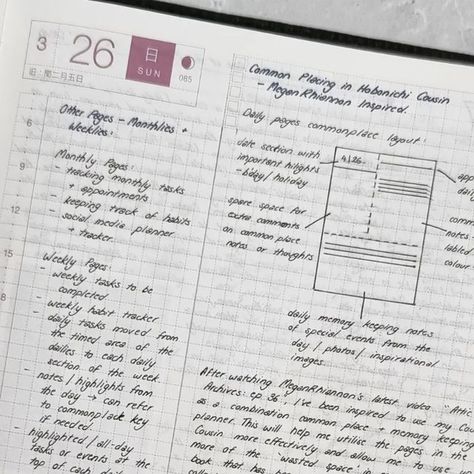 3 26 日 SUN 085
旧・閏二月五日
6
9
12
15
18
Other Pages - Monthlies +
Weeklies:
Monthly Pages:
- tracking monthly tasks
+ appointments
- keeping track of habits
- social media planner
+ tracker.
Weekly Pages:
- weekly tasks to be
completed
- weekly habit tracker
- daily tasks moved from
the timed area of the
dailies to each daily
section of the week.
- notes/highlights from
the day → can refer
to commonplace key
if needed.
- highlighted / all-day
tasks or events of the
top of each
Common Placing in Hobonichi Cousin
- MeganRhiannon Inspired.
Daily pages commonplace layout:
date section with
important hilights
- bday/holiday
4|26
spare space for
extra comments
on common place
notes or thoughts
app
dai
comm
notes
labled
colour
daily memory keeping notes
of special events from the
day / photos / inspirational
images.
After watching MeganRhiannon's latest video "
Archives: ep 36, I've been inspired to use my Cou
as a combination common place + memory keeping
planner. This will help me utilise the pages in the
Cousin more effectively and allow me to use
more of the 'wasted space' in
book that has